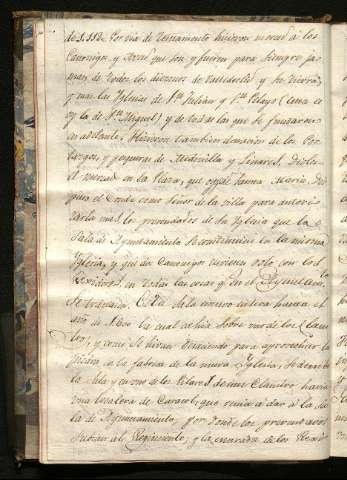 de 1.112. Por via de Testamento hicieron merced à los
Canonigos, y Prior que son, y fueren para siempre ja-
mas de todos los diezmos de Valladolid y de
y mas las Yglesias de Sn. Julian y Sn. Pelayo
y la de Sn. Miguel) y de todas las que se fundaren
en adelante. Hicieron tambien donacion de los Por-
tazgos, y pesqueras de y Linares. Dioles
el mercado en la Plaza, que oy se llama Maria. Dis-
puso el Conde como Señor de la villa para autori-
zarla mas, los previlegios de la Yglesia que la
Sala de Ayuntamiento se constituiese en la misma
Yglesia, y que dos Canonigos tuviesen voto con los
Rexidores, en todas las cosas q.e en el Regimiento
se tratasen. Esta Sala estuvo entera hasta el
año de 1.600 la cual caía sobre uno de los Claus-
tros, y como se hiciese para aprovechar la
piedra en la fabrica de la nueva Yglesia, se
la Sala y en uno de los Pilares del mismo Claustro havia
una escalera de Caracol, que venia a dar à la Sa-
la de Ayuntamiento, por donde los prevendados
subian al Regimiento, y la entrada de los Rexi-